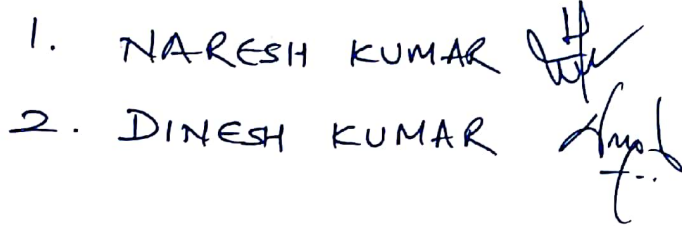 1. NARESH KUMAR
2. DINESH KUMAR